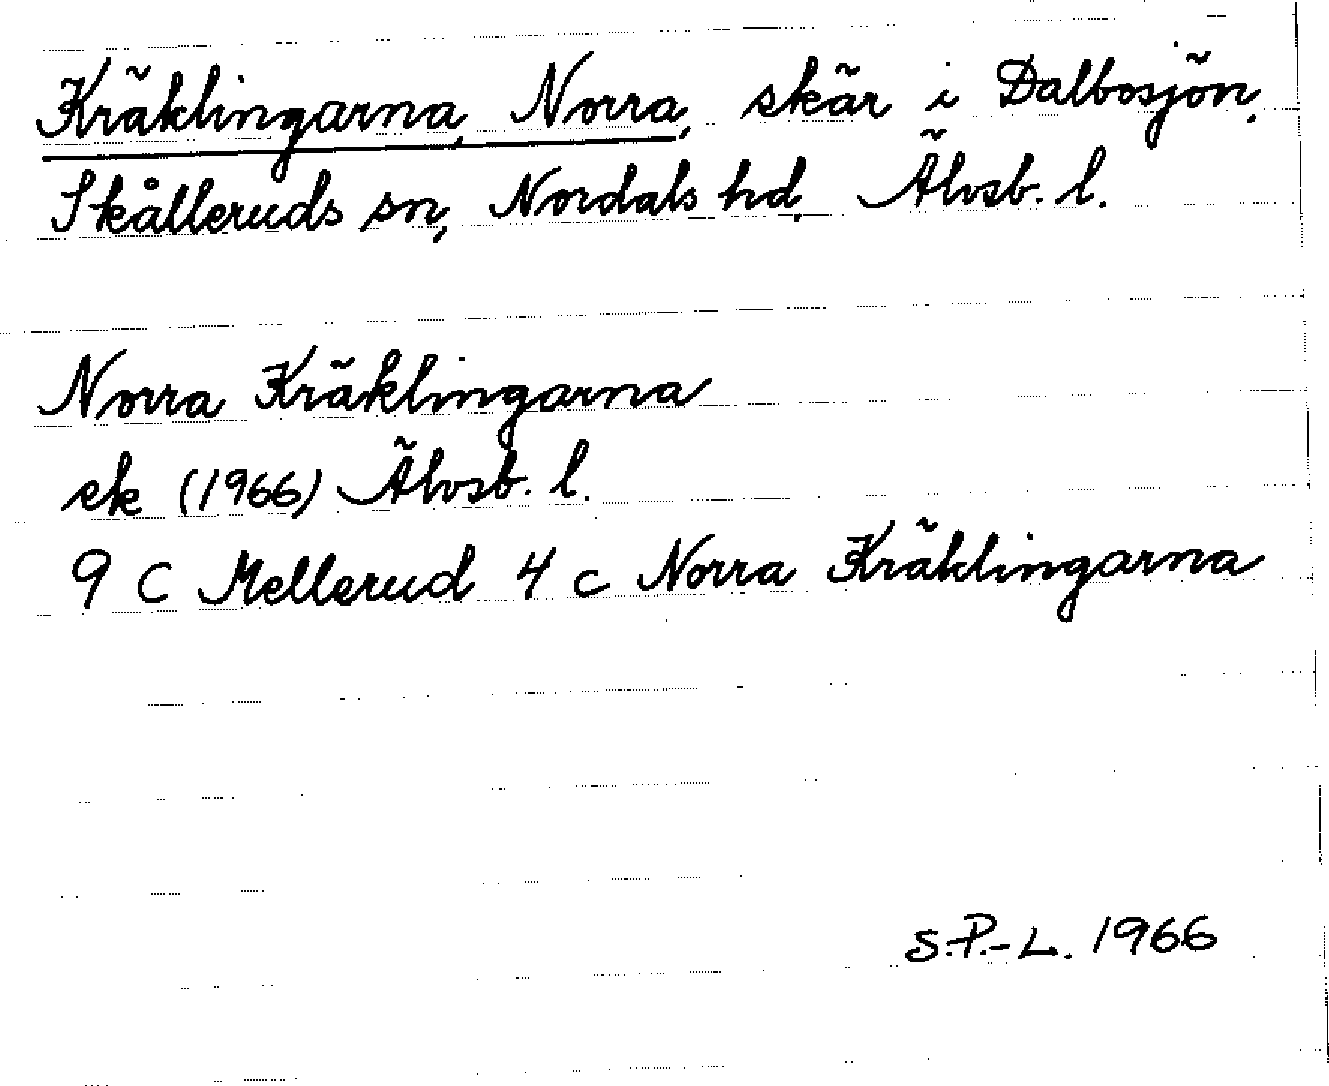 Kräklingarna, Norra, skär i Dalbosjön,
Skålleruds sn, Nordals hd, Älvsb. l.
Norra Kräklingarna
ek (1966) Älvsb. l.
9 C Mellerud 4 c Norra Kräklingarna
S.P.-L. 1966